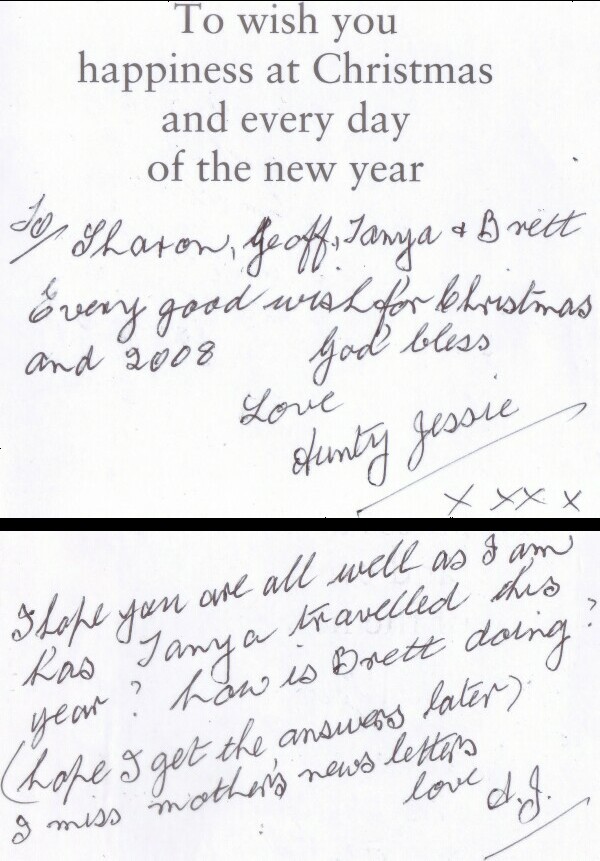 To wish you
happiness at Christmas
and every day
of the new year
To/ Sharon, Geoff, Tanya & Brett
Every good wish for Christmas
and 2008 God bless
Love
Aunty Jessie
x xx x
I hope you are all well as I am
has Tanya travelled this
year? how is Brett doing?
(hope I get the answers later)
I miss mother's news letters
love A.J.